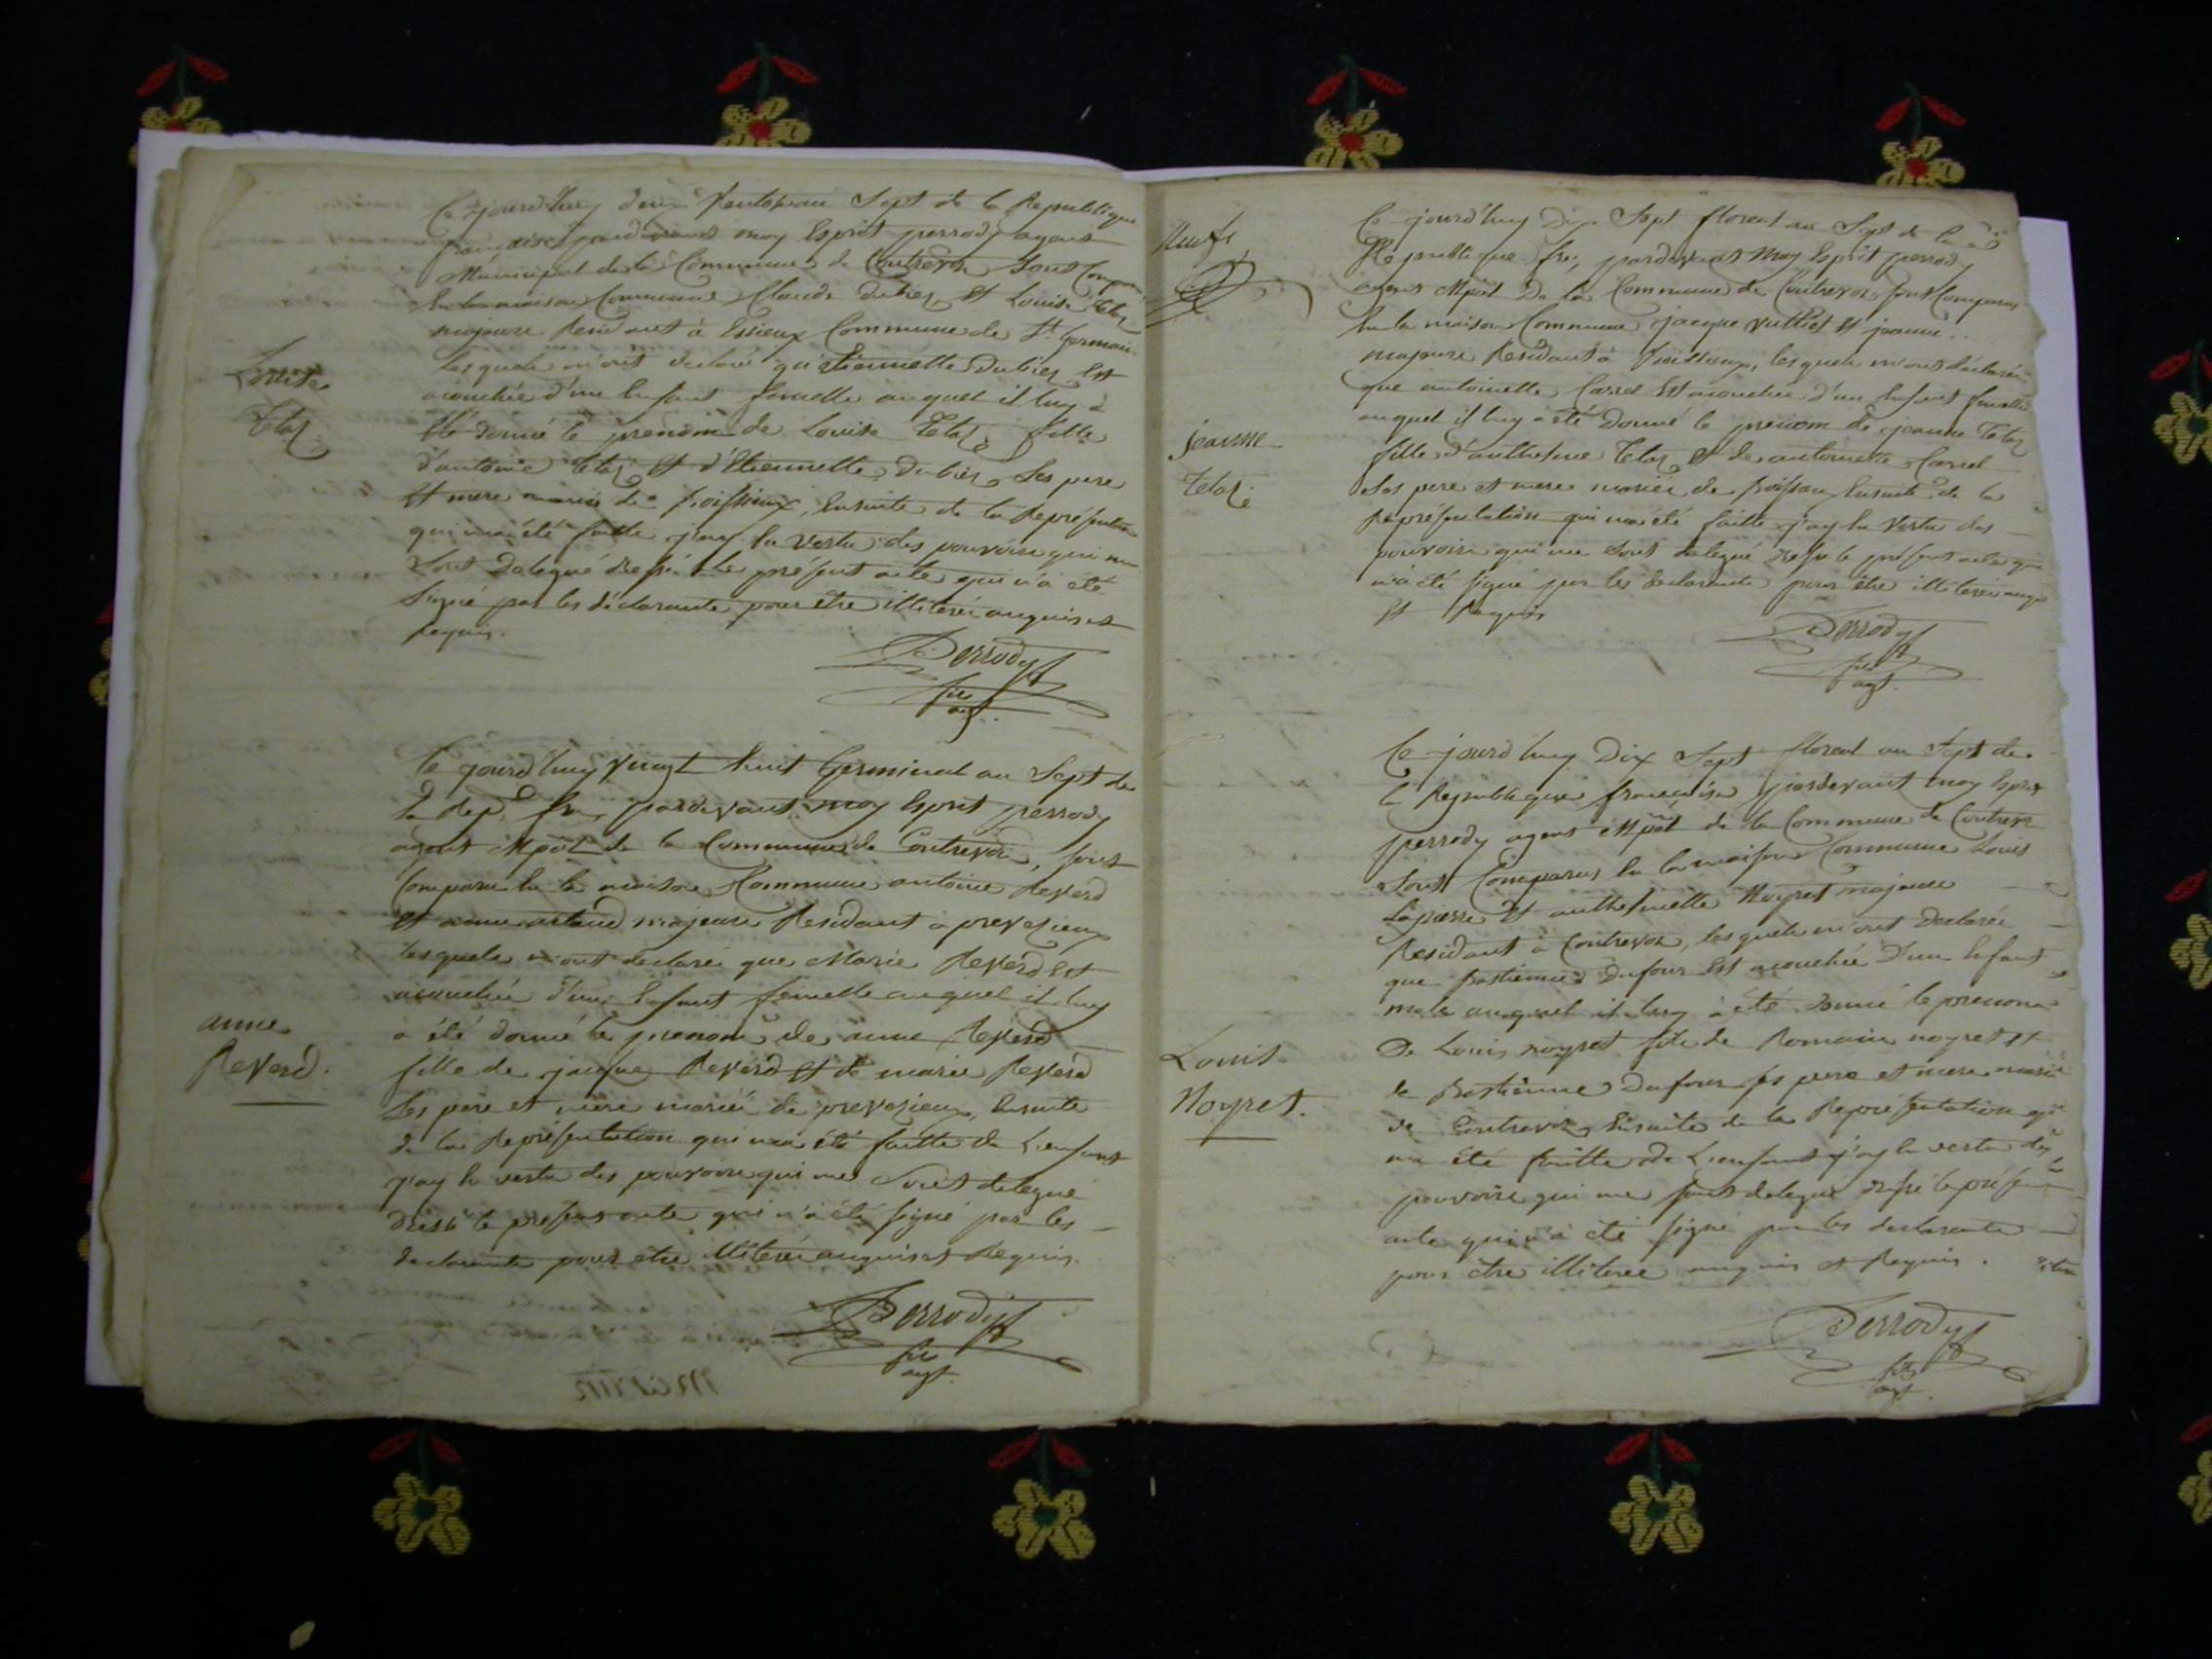 Ce jourd'huy deux Ventose an Sept de la Republique
française pardevant moy Esprit perrody agent
Municipal de la Commune de Contrevoz sont Comparu
En la maison Commune Claude Dubiez et Louise Tetaz
majeure Residant à Essieux Commune de St. Germain
Lesquels m'ont declaré qu'etiennette Dubiez est
acouchée d'un Enfant femelle auquel il luy à
été donné le prenom de Louise Tetaz fille
d'antoine Tetaz et d'Etiennette Dubiez Ses pere
et mere mariés de poissieux, Ensuite de la Representation
qui m'a été faitte j'ay En Vertu des pouvoirs qui me
Sont Delegué dressé le présent acte qui n'à été
Signé par les déclarants pour être illiterés anquis et
Requis.
Louise
Tetaz
Perrody
fils
agt.
Ce jourd'huy Vingt huit Germinal an Sept de
la Rep. fr. pardevant moy Esprit perrody
agent Mpal de la Commune de Contrevoz, sont
Comparu En la maison Commune antoine Reverd
et anne artaud majeure Residant à prevezieux
Lesquels m'ont declaré que Marie Reverd est
acouchée d'un Enfant femelle auquel il luy
à été donné le prenom de anne Reverd
fille de jacque Reverd et de marie Reverd
Ses pere et mere mariés de prevezieux, Ensuite
de la Representation qui m'a été faitte de L'enfant
j'ay En vertu des pouvoirs qui me Sont delegué
dressé le present acte qui n'à été signé par les
declarants pour être illiterés anquis et Requis.
anne
Reverd.
Perrody
fils
agt.
Martin
Neuf
Ce jourd'huy Dix Sept floreal an Sept de la
Republique fr. pardevant Moy Esprit perrody
agent Mpal De la Commune de Contrevoz sont Comparu
En la maison Commune jacque Vulliet et jeanne
majeure Residant à Poissieux, lesquels m'ont déclaré
que antoinette Carrel Est acouchée d'un Enfant femelle
auquel il luy à été Donné le prenom de jeanne Tetaz
fille d'anthelme Tetaz et de antoinette Carrel
Ses pere et mere mariés de poissieux Ensuite de la
Représentation qui m'a été faitte j'ay En Vertu des
pouvoirs qui me sont delegué dressé le présent acte qui
n'à été signé par les declarants pour être illiterés anquis
et Requis
jeanne
Tetaz.
Perrody
fils
agt.
Ce jourd'huy Dix Sept floreal an Sept de
la Republique française pardevant moy Esprit
perrody agent Mpal de la Commune de Contrevoz
Sont Comparus En la maison Commune Louis
Lapierre et anthelmette Noyret majeure
Residant à Contrevoz, lesquels m'ont Declaré
que Bastienne Dufour est acouchée D'un Enfant
male auquel il luy à été donné le prenom
De Louis noyret fils de Romain noyret et
de Bastienne Dufour ses pere et mere mariés
de Contrevoz, Ensuite de la Représentation qui
m'a été faitte de L'enfant j'ay En vertu des
pouvoirs qui me sont delegué dressé le présent
acte qui n'à été signé par les declarants
pour être illiterée anquis et Requis.
Louis
Noyret.
Perrody
fils
agt.